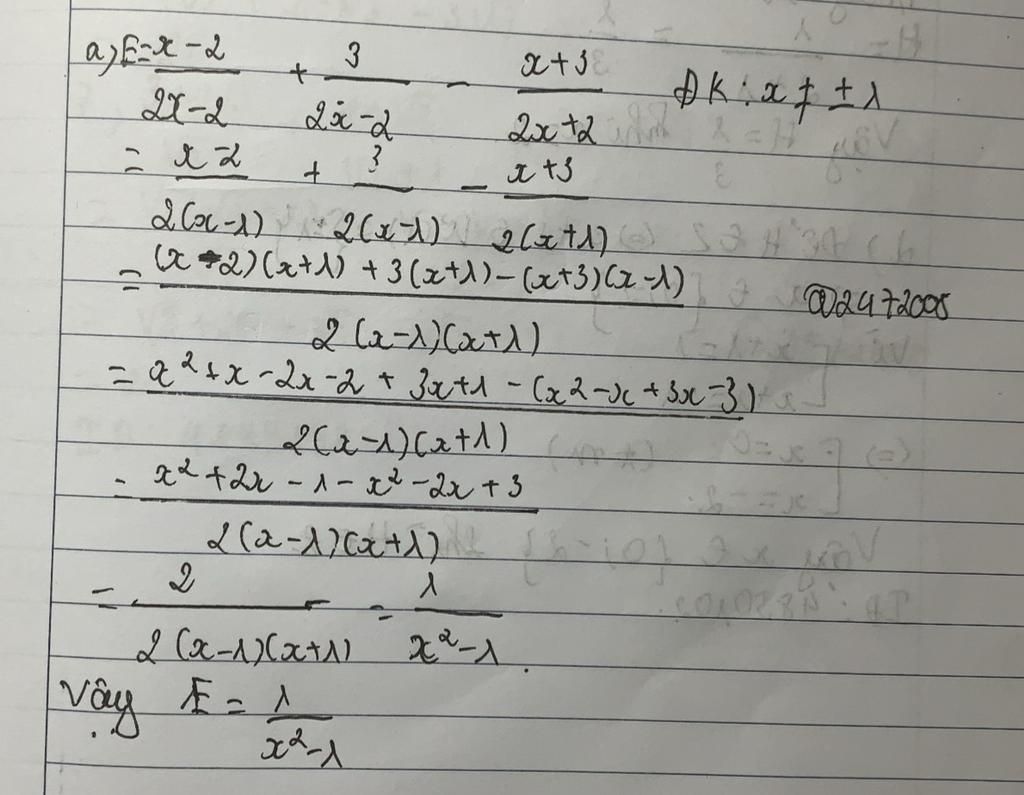 a) E = (x - 2)/(2x - 2) + 3/(2x - 2) - (x + 3)/(2x + 2) ĐK : x ≠ ± 1
= (x - 2)/(2(x - 1)) + 3/(2(x - 1)) - (x + 3)/(2(x + 1))
= ((x - 2)(x + 1) + 3(x + 1) - (x + 3)(x - 1))/(2(x - 1)(x + 1)) @2472005
= (x² + x - 2x - 2 + 3x + 1 - (x² - x + 3x - 3))/(2(x - 1)(x + 1))
= (x² + 2x - 1 - x² - 2x + 3)/(2(x - 1)(x + 1))
= 2/(2(x - 1)(x + 1)) = 1/(x² - 1).
Vậy E = 1/(x² - 1)